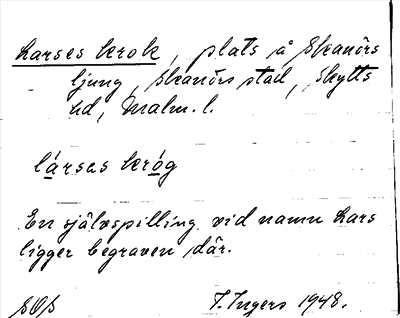 Larses krok, plats å Skanörs
ljung, Skanörs stad, Skytts
hd, Malm. l.
lársas króg
En självspilling vid namn Lars
ligger begraven där.
SOS I. Ingers 1948.